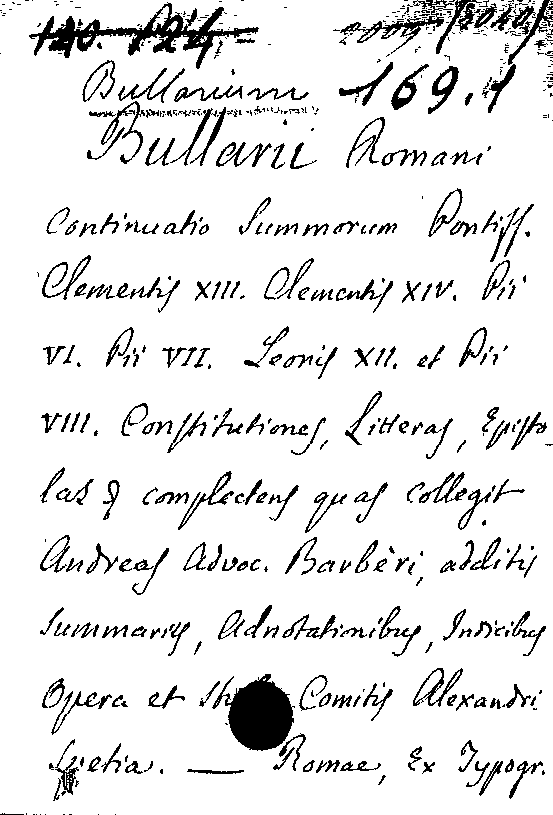 140. P24.
2009 / 3040/
Bullarium 169.1
Bullarii Romani
Continuatio Summorum Pontiff.
Clementis XIII. Clementis XIV. Pii
VI. Pii VII. Leonis XII. et Pii
VIII. Constitutiones, Litteras, Episto
las complectens quas collegit
Andreas Advoc. Barbèri, additis
Summariis, Adnotationibus, Indicibus
Opera et Comitis Alexandri
Spetia. — Romae, Ex Typogr.